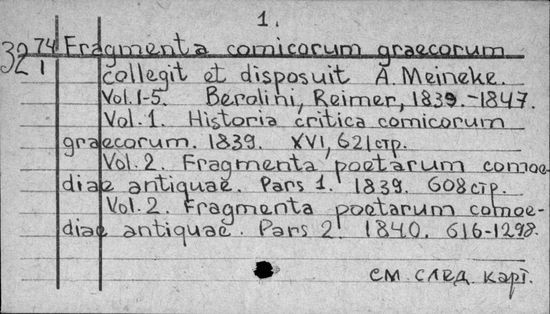 1.
32 74/1 Fragmenta comicorum graecorum
collegit et disposuit A. Meineke.
Vol. 1-5. Berolini, Reimer, 1839.-1847.
Vol. 1. Historia critica comicorum
graecorum. 1839. XVI, 621 стр.
Vol. 2. Fragmenta poetarum comoe-
diae antiquae. Pars 1. 1839. 608 стр.
Vol. 2. Fragmenta poetarum comoe-
diae antiquae. Pars 2. 1840. 616-1298.
см. след. карт.